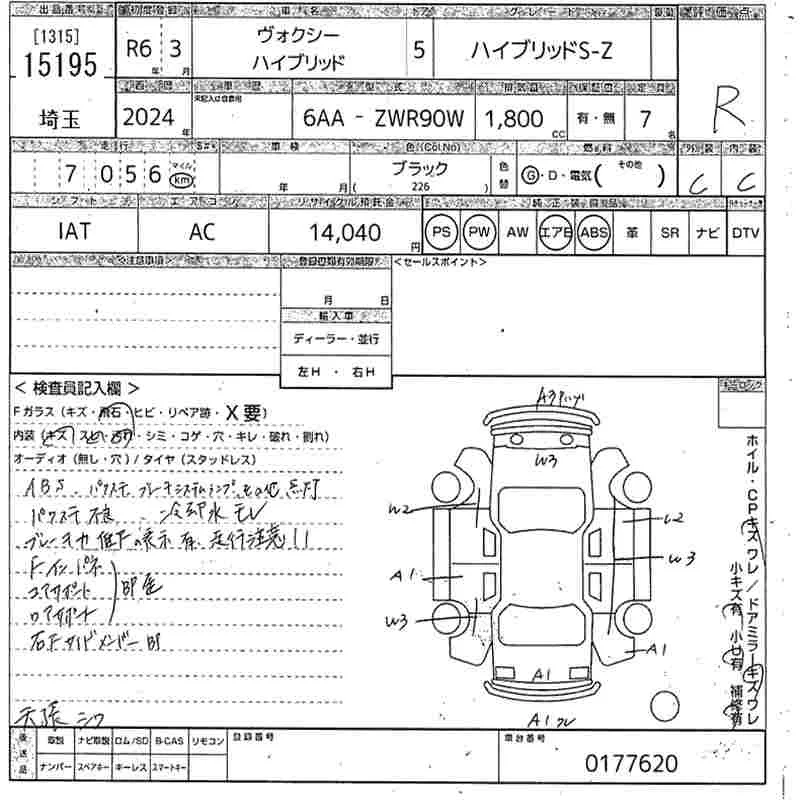 出品番号 初度登録 車名 ドア グレード 評価点
[1315]
15195
R6年 3月
ヴォクシー
ハイブリッド
5
ハイブリッドS-Z
R
埼玉
西暦 車歴 型式 排気量 定員
2024年
未記入は自家用
6AA - ZWR90W
1,800 CC
有・無
7名
外装 内装
走行 車検 色(Col.No) 燃料
7056 マイル km
年 月
ブラック
( 226 )
色替
G・D・電気( その他 )
C C
シフト エアコン リサイクル預託金 純正装備品
IAT
AC
14,040円
PS PW AW エアB ABS 革 SR ナビ DTV
注意事項 登録書類有効期限 <セールスポイント>
月 日
輸入車
ディーラー・並行
左H ・ 右H
< 検査員記入欄 >
Fガラス (キズ・飛石・ヒビ・リペア跡・X要)
内装 (キズ スレ・汚れ・シミ・コゲ・穴・キレ・破れ・割れ)
オーディオ (無し・穴) / タイヤ (スタッドレス)
ABS、パワステ ブレーキシステムランプ その他 点灯
パワステ 不良 、冷却水モレ
ブレーキ力 低下の表示有 走行注意!!
Fインパネ
コアサポート
ロアサポート
右Fサイドメンバー
天張 シワ
W3
W2
W2
W3
A1
W3
A1
A1
A1 ワレ
ホイル・CPキズ ワレ / ドアミラーキズ ワレ
小キズ有 小凹有 補修有
後送品
取説 ナビ取説 ロム/SD B-CAS リモコン
ナンバー スペアキー キーレス スマートキー
登録番号
車台番号
0177620